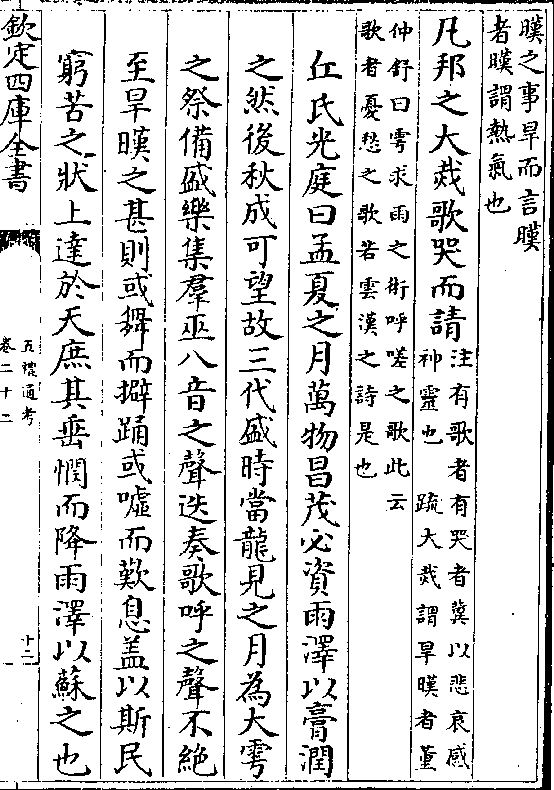 暵之事旱而言暵
者暵謂熱氣也
凡邦之大烖歌哭而請
注有歌者有哭者冀以悲哀感
神靈也 疏大烖謂旱暵者董
仲舒曰雩求雨之術呼嗟之歌此云
歌者憂愁之歌若雲漢之詩是也
丘氏光庭曰孟夏之月萬物昌茂必資雨澤以膏潤
之然後秋成可望故三代盛時當龍見之月為大雩
之祭備盛樂集羣巫八音之聲迭奏歌呼之聲不絶
至旱暵之甚則或舞而擗踊或噓而歎息盖以斯民
窮苦之狀上達於天庶其垂憫而降雨澤以蘇之也
欽定四庫全書
五禮通考
卷二十二
十二